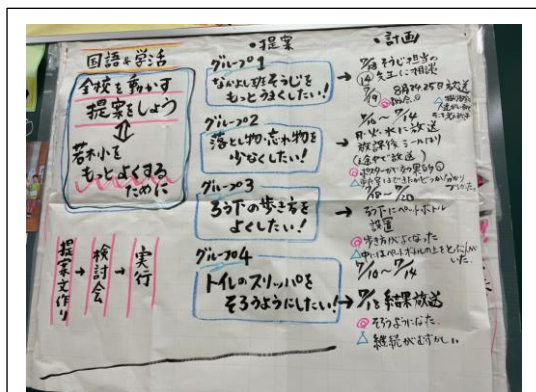 国語&学活
全校を動かす
提案をしよう
⇕
若木小を
もっとよくする
ために
提案文作り
→
検討会
→
実行
・提案
グループ1
なかよし班そうじを
もっとうまくしたい!
グループ2
落とし物・忘れ物を
少なくしたい!
グループ3
ろう下の歩き方を
よくしたい!
グループ4
トイレのスリッパを
そろうようにしたい!
・計画
そうじ担当の
先生に相談
7/19
8月24.25日放送
→ 7/10〜7/14
月・火・水に放送
放課後シールはり
(途中で放送)
7/18〜7/20
→ ろう下にペットボトル
設置
◎歩き方がよくなった
△中にはペットボトルの上をとぶ人が
いた。
7/10〜7/14
→ 結果放送
◎そろうようになった
△継続がむずかしい。